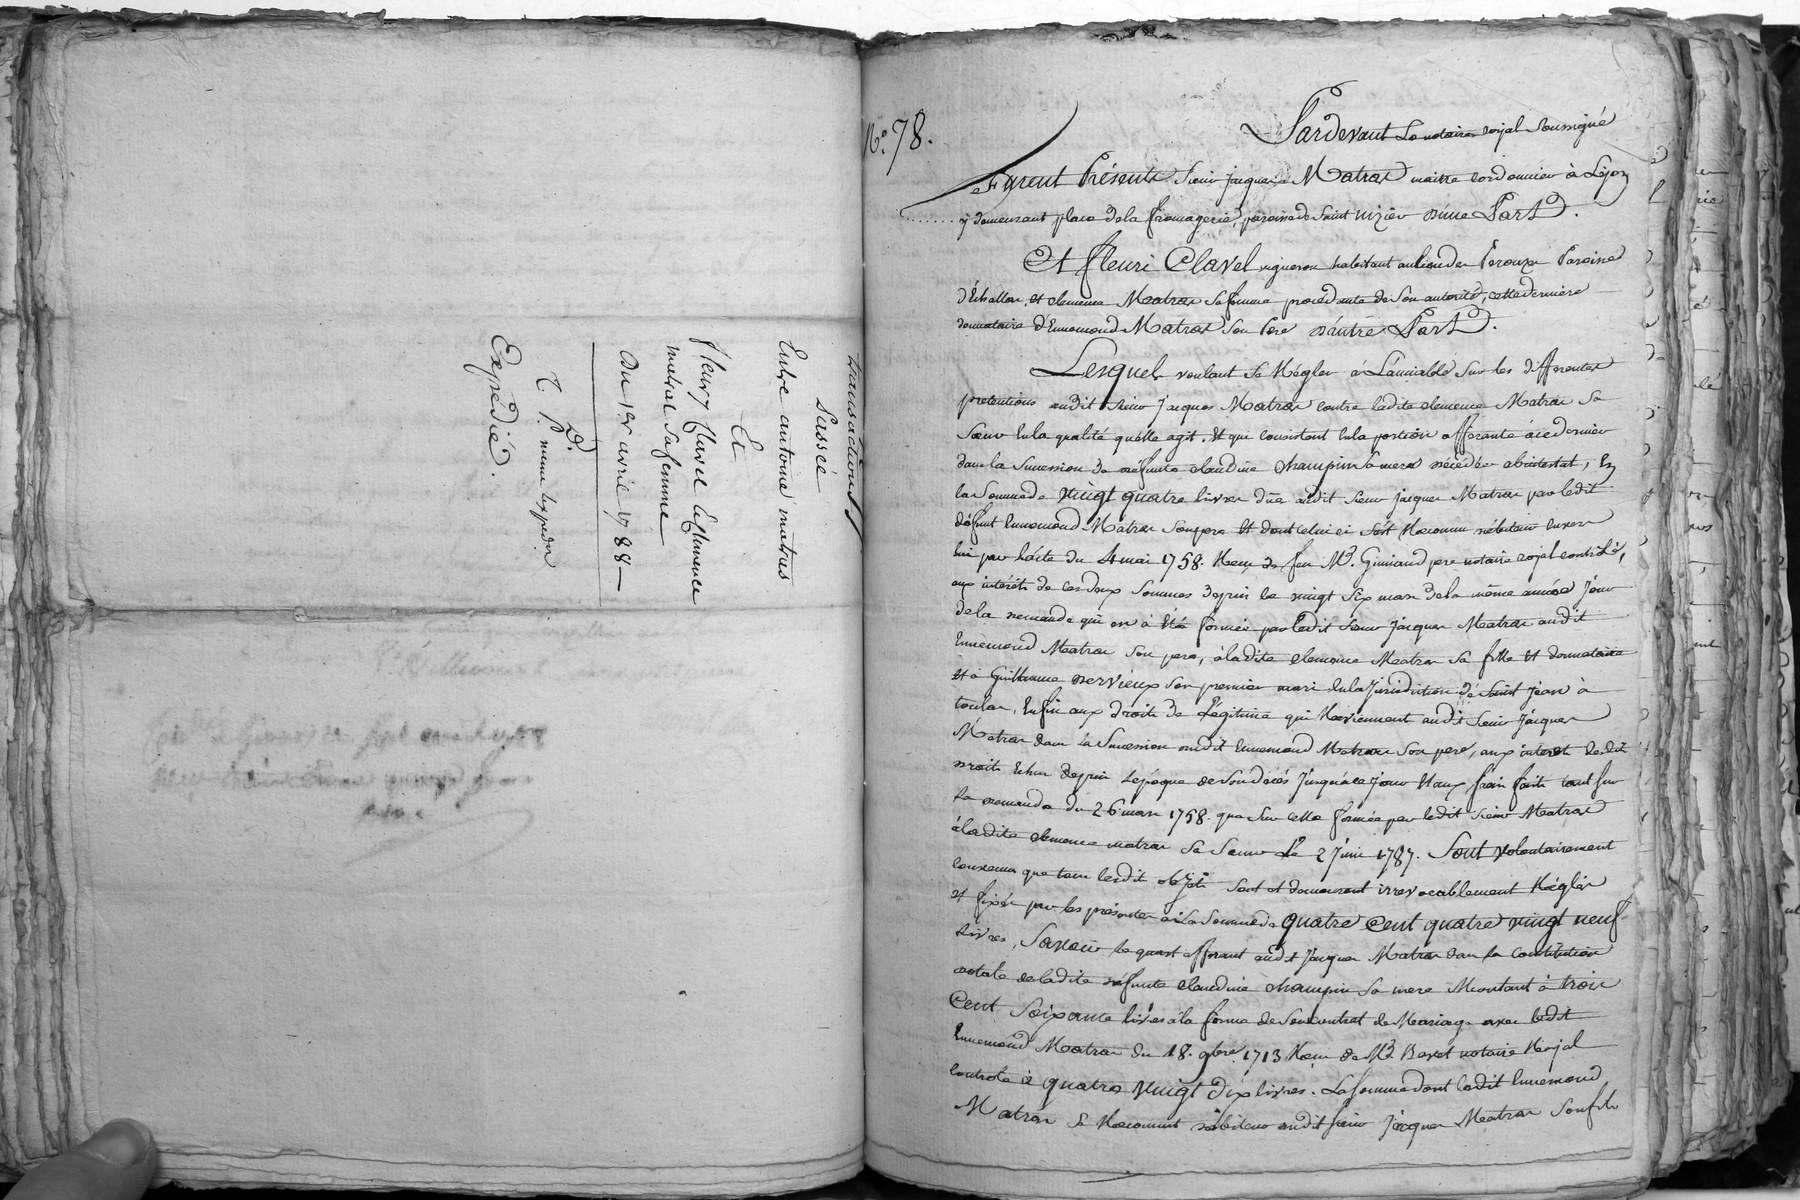 transaction
passée
Entre antoine matras
Et
fleury Clavel et Clemence
matras sa femme
Du 1er avril 1788
D.
Expédié.
No. 78.
Pardevant Le notaire royal soussigné
Furent Présents sieur jacques Matras maitre cordonnier à Lyon
y demeurant place de la fromagerie, paroisse de saint nizier d'une Part.
Et fleuri Clavel vigneron habitant au lieu de Peroux Paroisse
d'Echallas, et clemence Matras sa femme procédante de son autorité, cette derniere
donnataire d'Ennemond Matras son Pere d'autre Part.
Lesquels voulant se Régler à L'amiable sur les differentes
pretentions dudit sieur jacques Matras contre ladite clemence Matras sa
sœur En la qualité qu'elle agit. Et qui consistent En la portion afferante à ce dernier
dans la succession de defunte claudine champin sa mere décédée abintestat, En
la somme de vingt quatre livres düe audit sieur jacques Matras par ledit
défunt Ennemond Matras son pere Et dont celui ci s'est Reconnu débiteur Envers
lui par l'acte du 4 mai 1758. Reçu de feu Me. Gimiaud pere notaire royal controlé,
aux intérêts de ces deux sommes depuis le vingt six mars de la même année jour
de la demande qui en à Eté formée par ledit sieur jacques Matras audit
Ennemond Matras son pere, à ladite clemence Matras sa fille Et donnataire
et à Guillaume Dervieux son premier mari En la jurisdiction de saint jean à
toulas, Enfin aux droits de Légitime qui Reviennent audit sieur jacques
Matras dans la succession dudit Ennemond Matras son pere, aux interets desdits
droits Echus depuis L'époque de son décès jusqu'à ce jour Et aux frais faits tant sur
la demande du 26 mars 1758. que sur celle formée par ledit sieur Matras
à ladite clemence matras sa sœur Le 2 juin 1787. Sont volontairement
convenus que tous lesdits objets sont et demeurent irrevocablement Réglés
et fixés par les présentes à La somme de quatre cent quatre vingt neuf
livres, Savoir le quart afferant audit jacques Matras dans la constitution
dotale de ladite defunte claudine champin sa mere Montant à trois
cent soixante livres à la forme de son contrat de Mariage avec ledit
Ennemond Matras du 18. 9bre 1713 Reçu de Me Bavet notaire Royal
controlé à quatre vingt dix livres. La somme dont ledit Ennemond
Matras se Reconnut débiteur audit sieur jacques Matras son fils